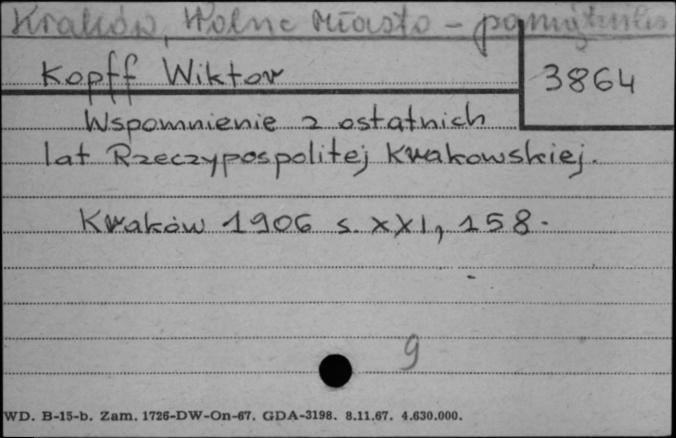 Kraków, Wolne Miasto - pamiętniki
Kopff Wiktor
3864
Wspomnienie z ostatnich
lat Rzeczypospolitej Krakowskiej.
Kraków 1906 s. XXI, 158.
9
WD. B-15-b. Zam. 1726-DW-On-67. GDA-3198. 8.11.67. 4.630.000.